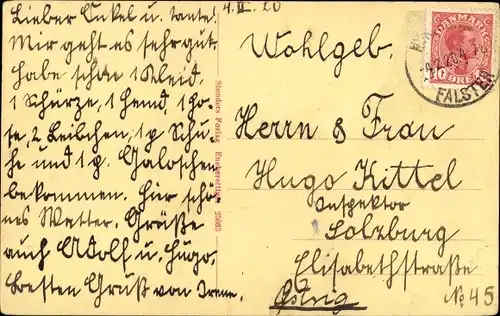 Lieber Onkel u. Tante!
4.II.20
Mir geht es sehr gut
habe schon 1 Kleid,
1 Schürze, 1 Hemd, 1 Ho-
se, 2 Leibchen, 1 p Schu-
he und 1 p. Galoschen
bekommen. Hier schö-
nes Wetter. Grüße
auch Adolf u. Hugo.
Besten Gruß von Irene.
Stenders Forlag Eneberettiget 25083
DANMARK
10 ØRE 10
FALSTER
Wohlgeb.
Herrn & Frau
Hugo Kittel
Inspektor
Solzburg
Elisabethstraße
No 45